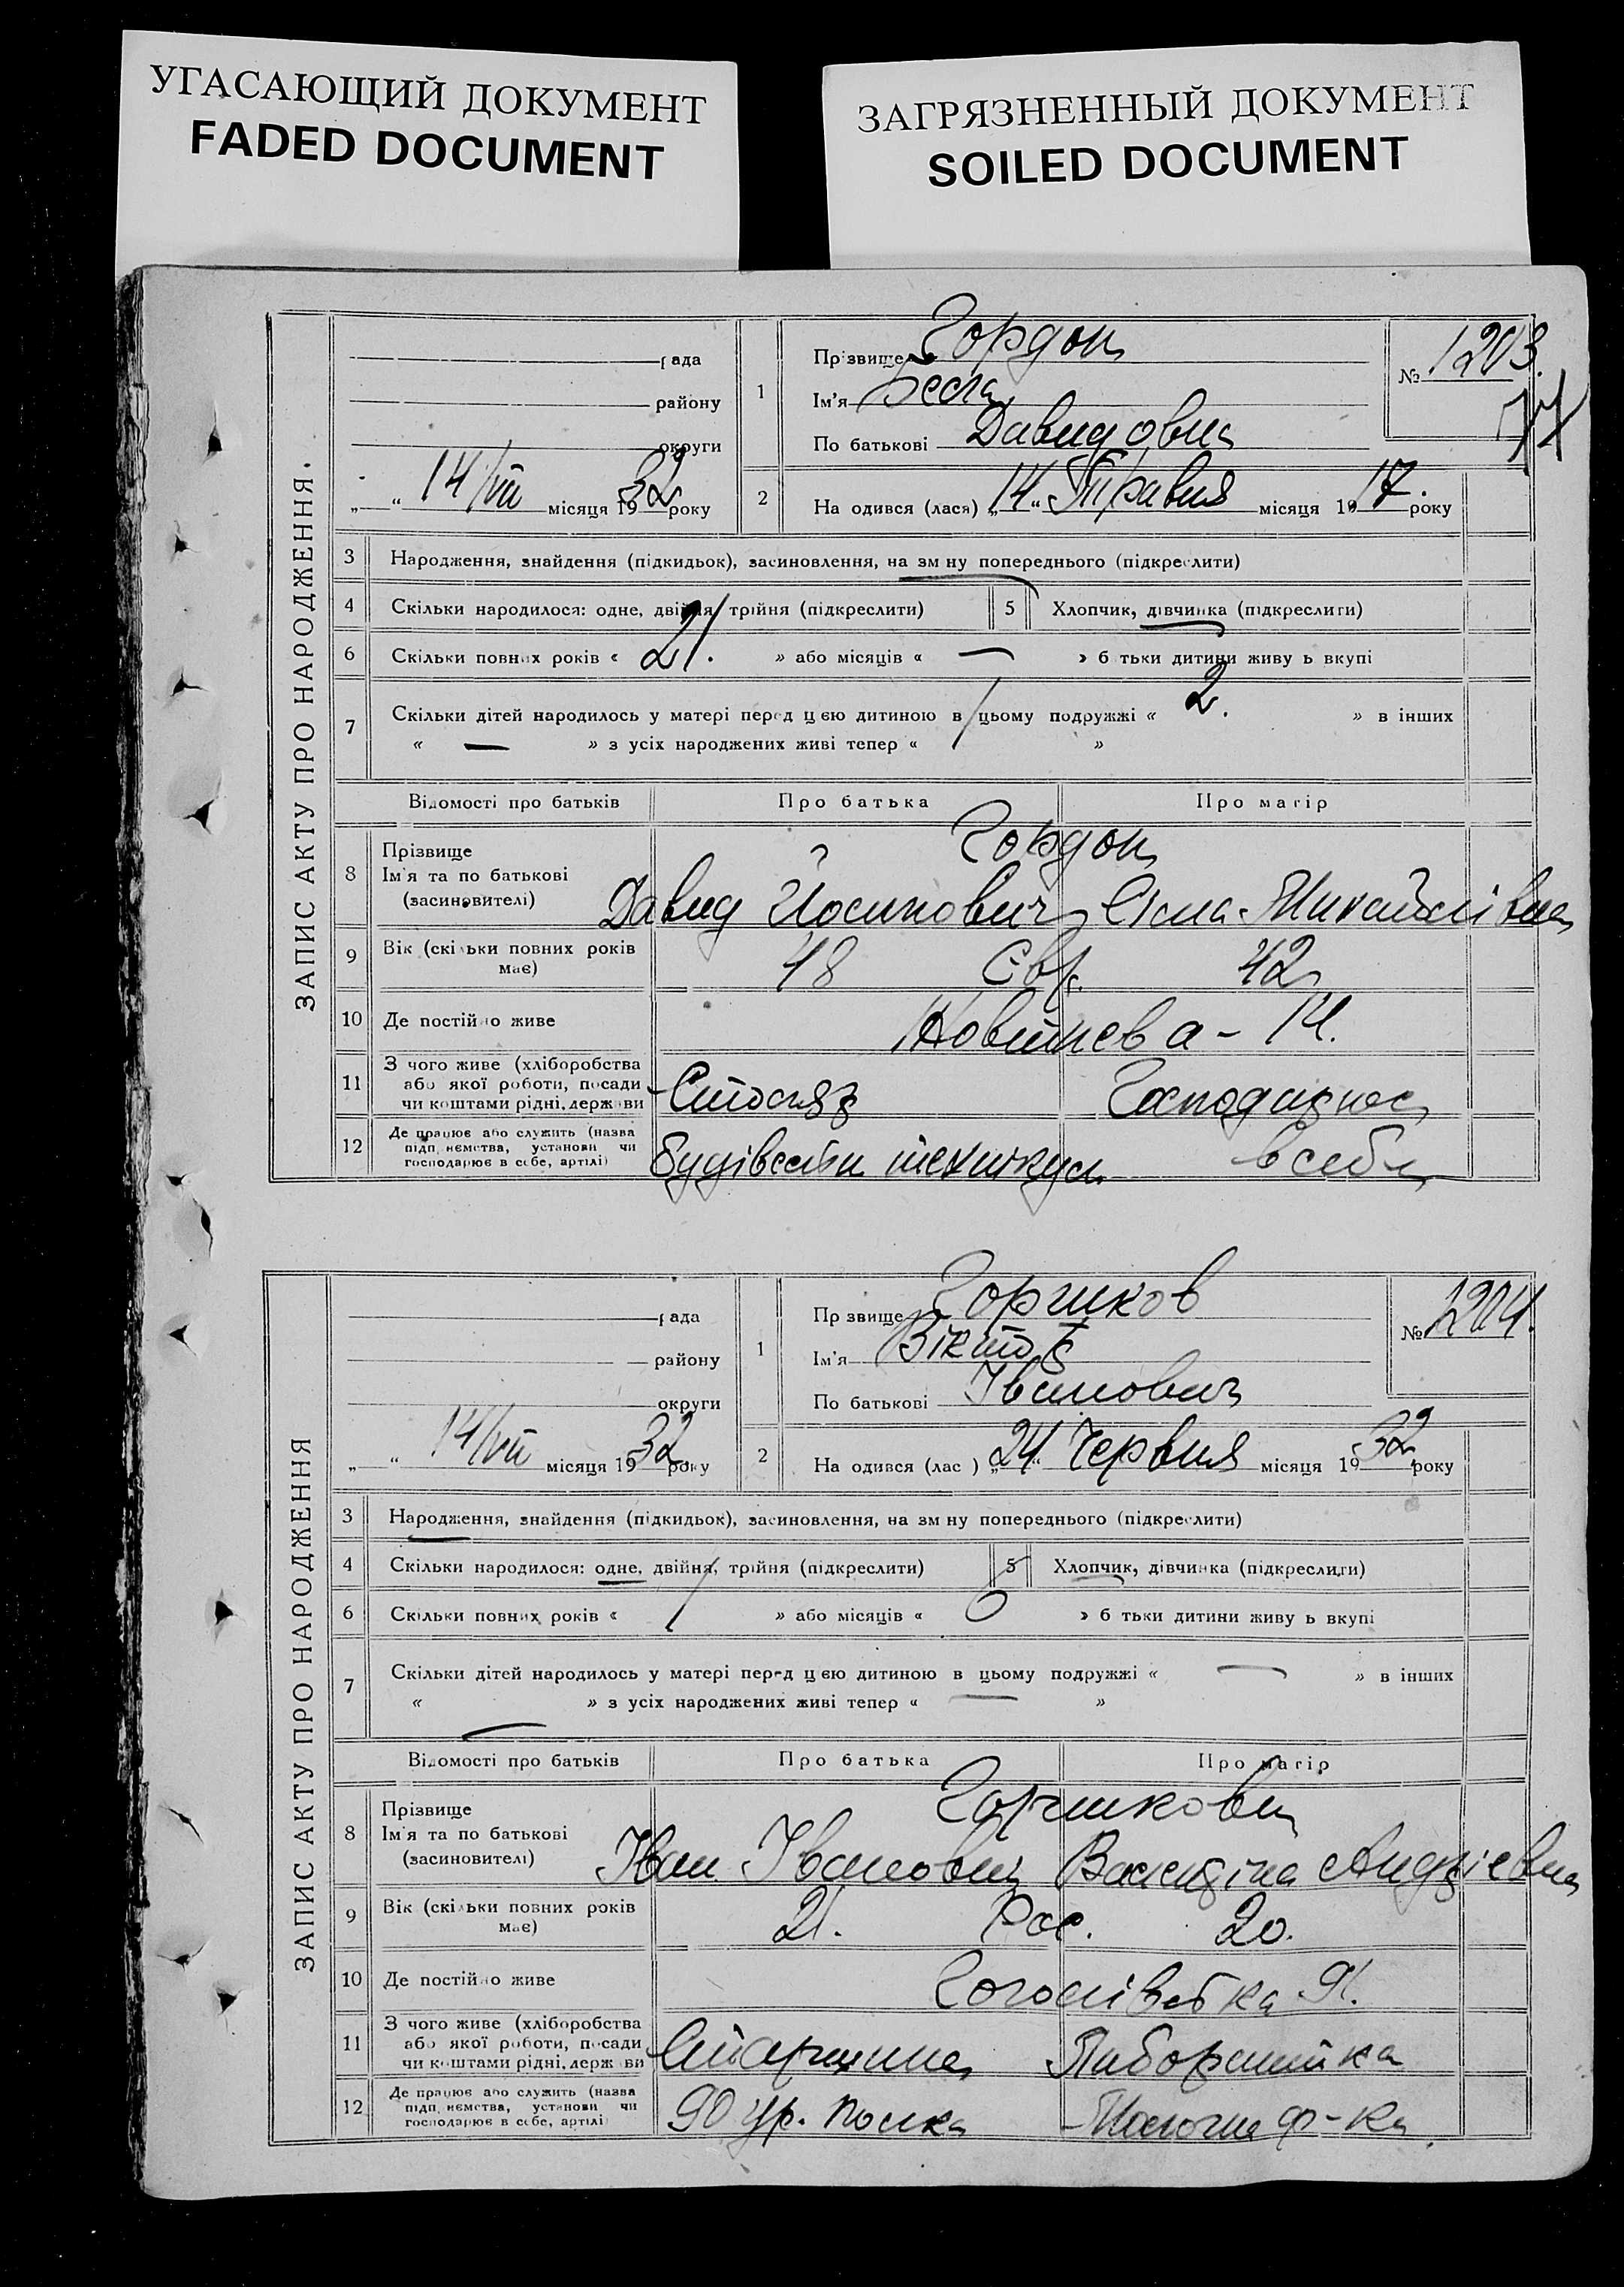 УГАСАЮЩИЙ ДОКУМЕНТ
FADED DOCUMENT
ЗАГРЯЗНЕННЫЙ ДОКУМЕНТ
SOILED DOCUMENT
ЗАПИС АКТУ ПРО НАРОДЖЕННЯ.
рада
району
округи
„ “ 14/VII місяця 1932 року
1 Прізвище Гордон
Ім'я
По батькові Давидовна
№ 1203.
2 На одився (лася) „14“ Травня місяця 1917. року
3 Народження, знайдення (підкидьок), засиновлення, на зм ну попереднього (підкреслити)
4 Скільки народилося: одне, двійня, трійня (підкреслити) 5 Хлопчик, дівчинка (підкреслити)
6 Скільки повних років « 21. » або місяців « — » б тьки дитини живу ь вкупі
7 Скільки дітей народилось у матері перед цією дитиною в цьому подружжі « 2. » в інших
« — » з усіх народжених живі тепер « »
Відомості про батьків Про батька Про матір
8 Прізвище Гордон
Ім'я та по батькові
(засиновителі) Давид Йосипович Михайлівна
9 Вік (скільки повних років має) 48 Євр. 42
10 Де постійно живе 14.
11 З чого живе (хліборобства
або якої роботи, посади
чи коштами рідні, держ ви Столяр Господарює
12 Де працює або служить (назва
підп иємства, установи чи
господарює в себе, артілі) в себе
ЗАПИС АКТУ ПРО НАРОДЖЕННЯ
рада
району
округи
„ “ 14/VII місяця 1932 року
1 Пр звище Горшков
Ім'я Віктор
По батькові Іванович
№ 1204.
2 На одився (лас ) „24“ Червня місяця 1932 року
3 Народження, знайдення (підкидьок), засиновлення, на зм ну попереднього (підкреслити)
4 Скільки народилося: одне, двійня, трійня (підкреслити) 5 Хлопчик, дівчинка (підкреслити)
6 Скільки повних років « 1 » або місяців « 0 » б тьки дитини живу ь вкупі
7 Скільки дітей народилось у матері перед цією дитиною в цьому подружжі « — » в інших
« » з усіх народжених живі тепер « — »
Відомості про батьків Про батька Про матір
8 Прізвище Горшкови
Ім'я та по батькові
(засиновителі) Іван Іванович Андріевна
9 Вік (скільки повних років має) 21. Рос. 20.
10 Де постійно живе 91.
11 З чого живе (хліборобства
або якої роботи, посади
чи коштами рідні, держ ви Старшина Лаборантка
12 Де працює або служить (назва
підп иємства, установи чи
господарює в себе, артілі) 90 полка ф-ка